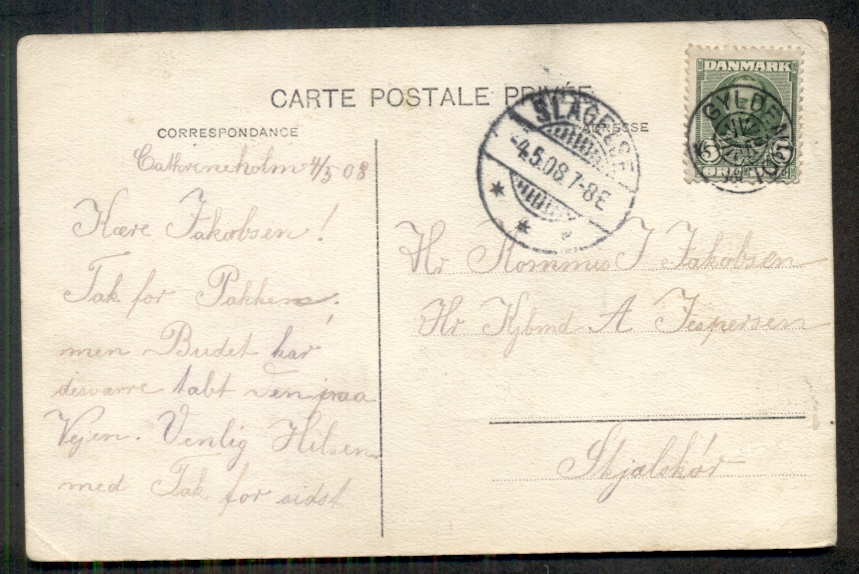 CARTE POSTALE PRIVÉE
CORRESPONDANCE
ADRESSE
DANMARK
5 5
SLAGELSE
-4.5.08.7-8E
Cathrineholm 4/5 08
Kære Jakobsen!
Tak for Pakken;
men Budet har
desværre tabt den paa
Vejen. Venlig Hilsen
med Tak for sidst
Hr Kommis J Jakobsen
Hr Kjbmd A Jespersen
Skjælskør